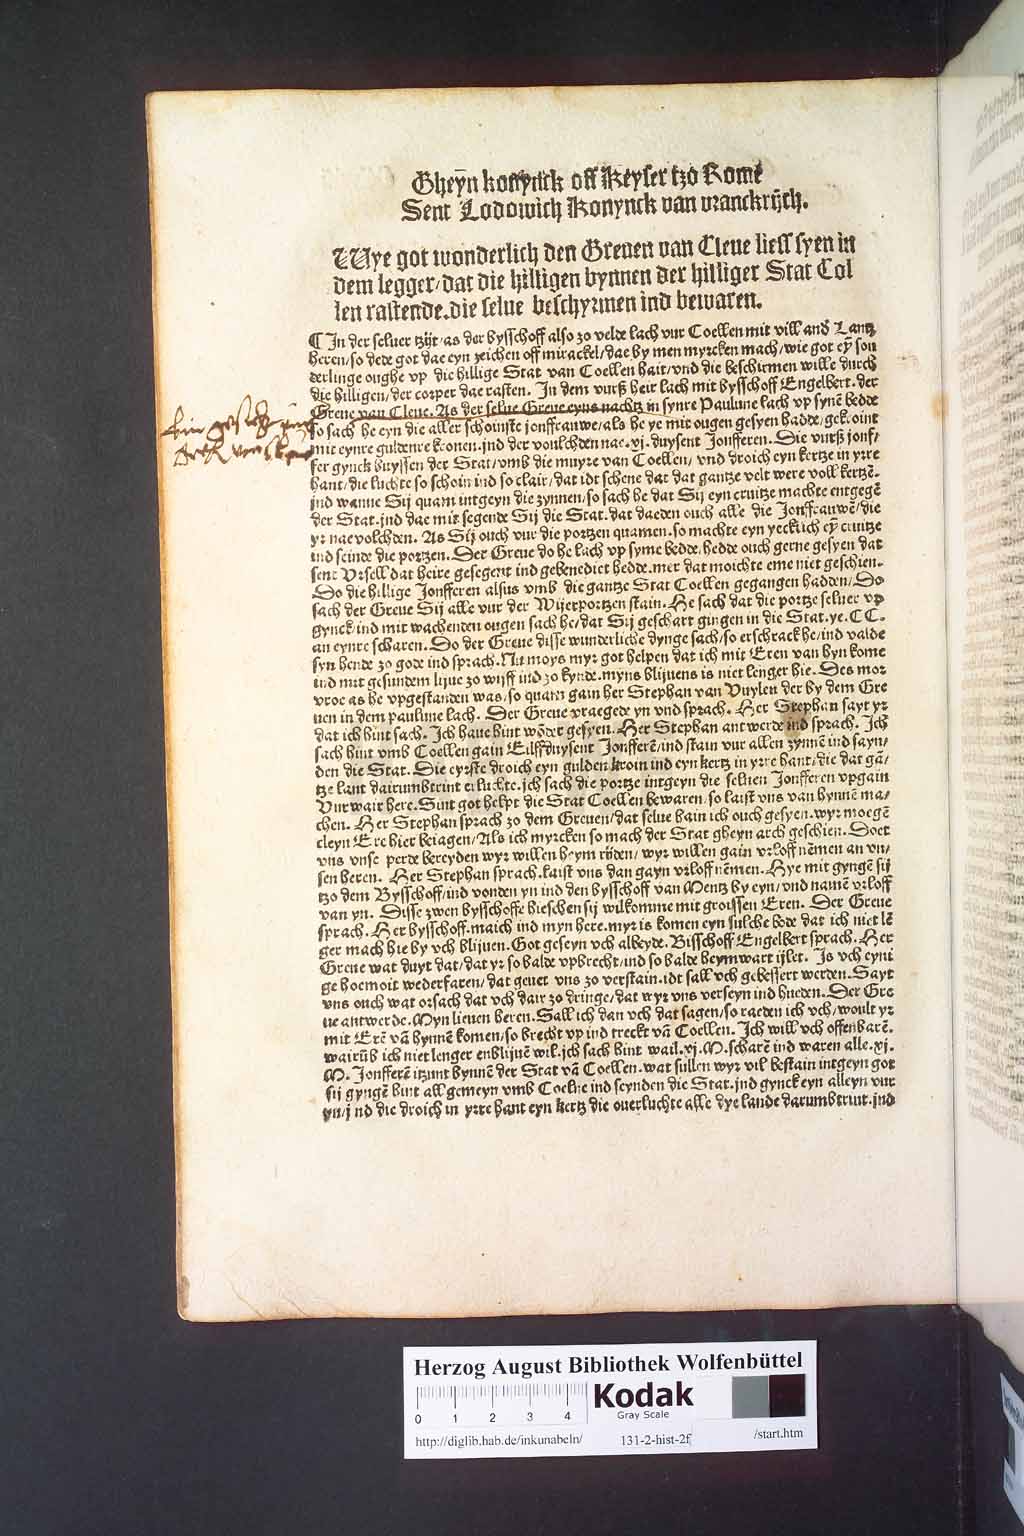 Gheyn konynck off Keyser tzo Rome
Sent Lodowich Konynck van vranckrijch.
Wye got wonderlich den Greuen van Cleue liess syen in
dem legger/dat die hilligen bynnen der hilliger Stat Col
len rastende.die selue beschyrmen ind bewaren.
¶ In der seluer tzijt/as der bysschoff also zo velde lach vur Coellen mit vill and̃ Lantz
heren/so dede got dae eyn zeichen off mirackel/dae by men myrcken mach/wie got eyn̄ son
derlinge oughe vp die hillige Stat van Coellen hait/vnd die beschirmen wille durch
die hilligen/der corper dae rasten. In dem vurß heir lach mit bysschoff Engelbert.der
Greue van Cleue. As der selue Greue eyns nachtz in synre Paulune lach vp synē bedde
so sach he eyn die aller schoinste jonffrauwe/als he ye mit ougen gesyen hadde/gekroint
mit eynre guldenre kronen.jnd der voulchden nae.xj.duysent Jonfferen. Die vurß jonf/
fer gynck buyssen der Stat/vmb die muyre van Coellen/vnd droich eyn kertze in yrre
hant/die luchte so schoin ind so clair/dat idt schene dat dat gantze velt were voll kertzē.
jnd wanne Sij quam intgeyn die zynnen/so sach he dat Sij eyn cruitze machte entgegē
der Stat.jnd dae mit segende Sij die Stat.dat daeden ouch alle die Jonffrauwē/die
yr nae volchden. As Sij ouch vur die portzen quamen.so machte eyn yecklich eyn̄ cruitze
ind seinde die portzen. Der Greue do he lach vp syme bedde.hedde ouch gerne gesyen dat
sent Vrsell dat heire gesegent ind gebenediet hedde.mer dat moichte eme niet geschien.
Do die hillige Jonfferen alsus vmb die gantze Stat Coellen gegangen hadden/Do
sach der Greue Sij alle vur der Wijerportzen stain. He sach dat die portze seluer vp
gynck/ind mit wachenden ougen sach he/dat Sij geschart gingen in die Stat.ye.CC.
an eynre scharen. Do der Greue disse wunderliche dynge sach/so erschrack he/ind valde
syn hende zo gode ind sprach. Nu moys myr got helpen dat ich mit Eren van hyn kome
ind mit gesundem lijue zo wijff ind zo kynde.myns blijuens is niet lenger hie. Des mor
vroe as he vpgestanden was/so quam gain her Stephan van Vuylen der by dem Gre
uen in dem paulune lach. Der Greue vraegede yn vnd sprach. Her Stephan sayt yr
dat ich hint sach. Ich haue hint wōder gesyen. Her Stephan antwerde ind sprach. Ich
sach hint vmb Coellen gain Eilffduysent Jonfferē/ind stain vur allen zynnē ind sayn/
den die Stat. Die eyrste droich eyn gulden kroin ind eyn kertz in yrre hant/die dat gā/
tze lant dairumbtrint erluchte.ich sach die portze intgeyn die seluen Jonfferen vpgain
Vurwair here. Sint got helpt die Stat Coellen bewaren/so laist vns van hynnē ma/
chen. Her Stephan sprach zo dem Greuen/dat selue hain ich ouch gesyen.wyr moegē
cleyn Ere hier beiagen/Als ich myrcken so mach der Stat gheyn arch geschien. Doet
vns vnse perde bereyden wyr willen heym rijden/wyr willen gain vrloff nēmen an vn/
sen heren. Her Stephan sprach.laist vns dan gayn vrloff nēmen. Hye mit gyngē sij
tzo dem Bysschoff/ind vonden yn ind den bysschoff van Mentz by eyn/vnd namē vrloff
van yn. Disse zwen bysschoffe hieschen sij wilkomme mit groissen Eren. Der Greue
sprach. Her bysschoff.maich ind myn here.myr is komen eyn sulche bode dat ich niet lē
ger mach hie by vch blijuen. Got geseyn vch albeyde. Bisschoff Engelbert sprach. Her
Greue wat duyt dat/dat yr so balde vpbrecht/ind so balde heymwart ijlet. Is vch eyni
ge hoemoit wederfaren/dat geuet vns zo verstain.idt sall vch gebessert werden. Sayt
vns ouch wat orsach dat vch dair zo dringe/dat wyr vns verseyn ind hueden. Der Gre
ue antwerde. Myn lieuen heren. Sall ich dan vch dat sagen/so raeden ich vch/woult yr
mit Erē vā hynnē komen/so brecht vp ind treckt vā Coellen. Ich will vch offenbarē.
wairūb ich niet lenger enblijuē wil.ich sach hint wail.xj.M.scharē ind waren alle.xj.
M. Jonfferē itzunt bynnē der Stat vā Coellen.wat sullen wyr vil bestain intgeyn got
sij gyngē hint allgemeyn vmb Coelne ind seynden die Stat.jnd gynck eyn alleyn vur
yn/jnd die droich in yrre hant eyn kertz die ouerluchte alle dye lande darumbtrint.jnd
Herzog August Bibliothek Wolfenbüttel
0 1 2 3 4
Kodak
Gray Scale
http://diglib.hab.de/inkunabeln/ 131-2-hist-2f /start.htm